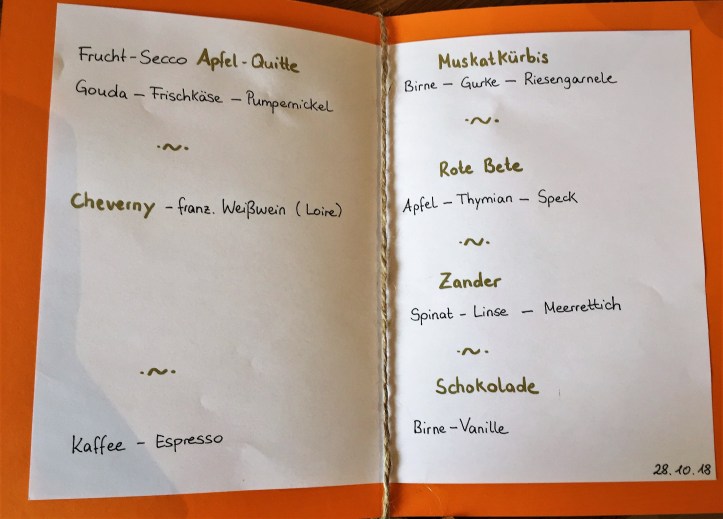 Frucht-Secco Apfel-Quitte
Gouda – Frischkäse – Pumpernickel
Cheverny – franz. Weißwein (Loire)
Kaffee – Espresso
Muskatkürbis
Birne – Gurke – Riesengarnele
Rote Bete
Apfel – Thymian – Speck
Zander
Spinat – Linse – Meerrettich
Schokolade
Birne – Vanille
28.10.18